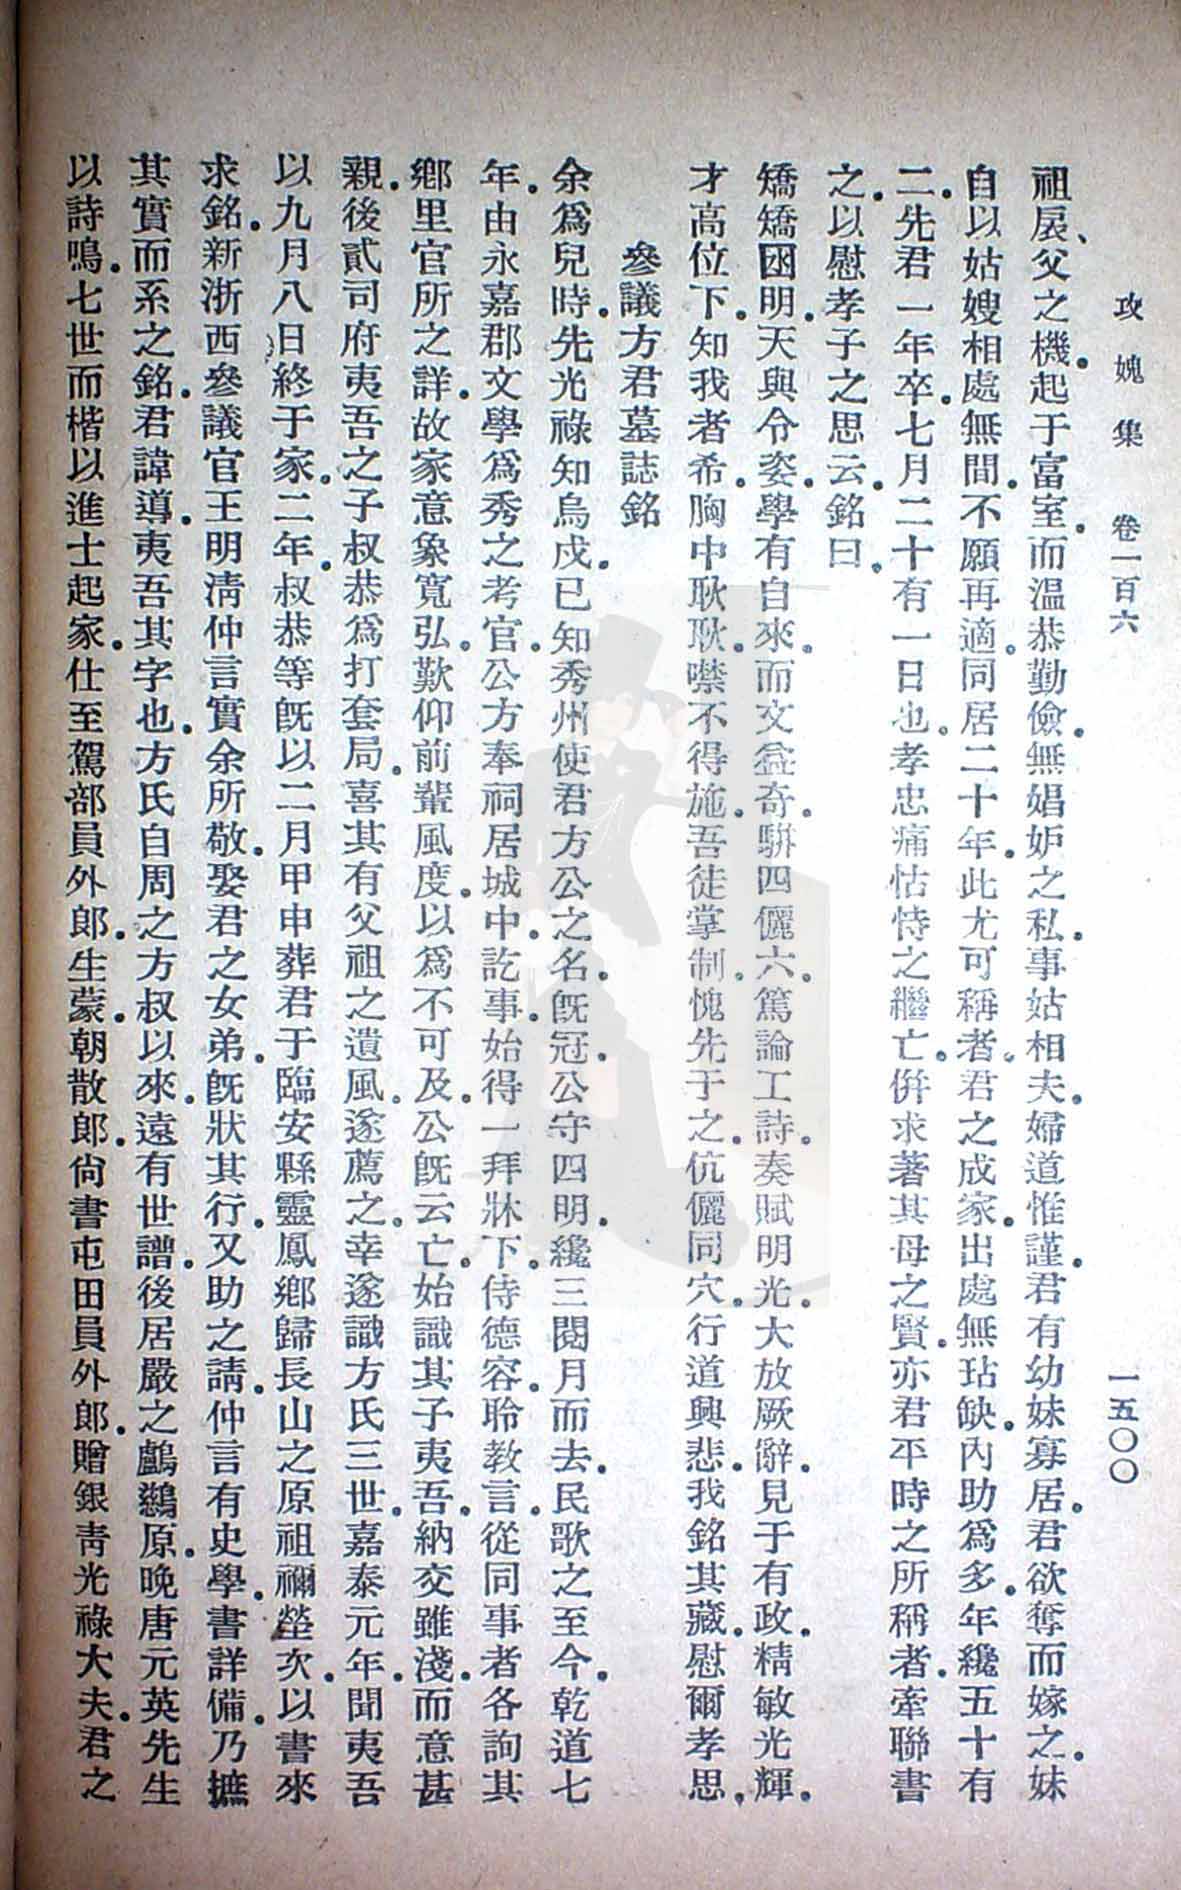 攻媿集　卷一百六　一五〇〇
祖扆、父之機。起于富室。而溫恭勤儉。無娼妒之私。事姑相夫。婦道惟謹。君有幼妹寡居。君欲奪而嫁之。妹
自以姑嫂相處無間。不願再適。同居二十年。此尤可稱者。君之成家。出處無玷缺。內助爲多。年纔五十有
二。先君一年卒。七月二十有一日也。孝忠痛怙恃之繼亡。倂求著其母之賢。亦君平時之所稱者。牽聯書
之。以慰孝子之思云。銘曰。
矯矯國明。天與令姿。學有自來。而文益奇。騈四儷六。篤論工詩。奏賦明光。大放厥辭。見于有政。精敏光輝。
才高位下。知我者希。胸中耿耿。噤不得施。吾徒掌制。愧先于之。伉儷同穴。行道興悲。我銘其藏。慰爾孝思。
參議方君墓誌銘
余爲兒時。先光祿知烏戍。已知秀州使君方公之名。旣冠。公守四明。纔三閱月而去。民歌之至今。乾道七
年。由永嘉郡文學爲秀之考官。公方奉祠居城中。訖事。始得一拜牀下。侍德容。聆教言。從同事者各詢其
鄉里官所之詳。故家意象寬弘。歎仰前輩風度。以爲不可及。公旣云亡。始識其子夷吾。納交雖淺。而意甚
親。後貳司府。夷吾之子叔恭爲打套局。喜其有父祖之遺風。遂薦之。幸遂識方氏三世。嘉泰元年。聞夷吾
以九月八日終于家。二年。叔恭等旣以二月甲申葬君于臨安縣靈鳳鄉歸長山之原祖禰塋次。以書來
求銘。新浙西參議官王明淸仲言。實余所敬。娶君之女弟。旣狀其行。又助之請。仲言有史學。書詳備。乃摭
其實而系之銘。君諱導。夷吾其字也。方氏自周之方叔以來。遠有世譜。後居嚴之鸕鶿原。晚唐元英先生
以詩鳴。七世而楷以進士起家。仕至駕部員外郎。生蒙。朝散郎。尙書屯田員外郎。贈銀靑光祿大夫。君之